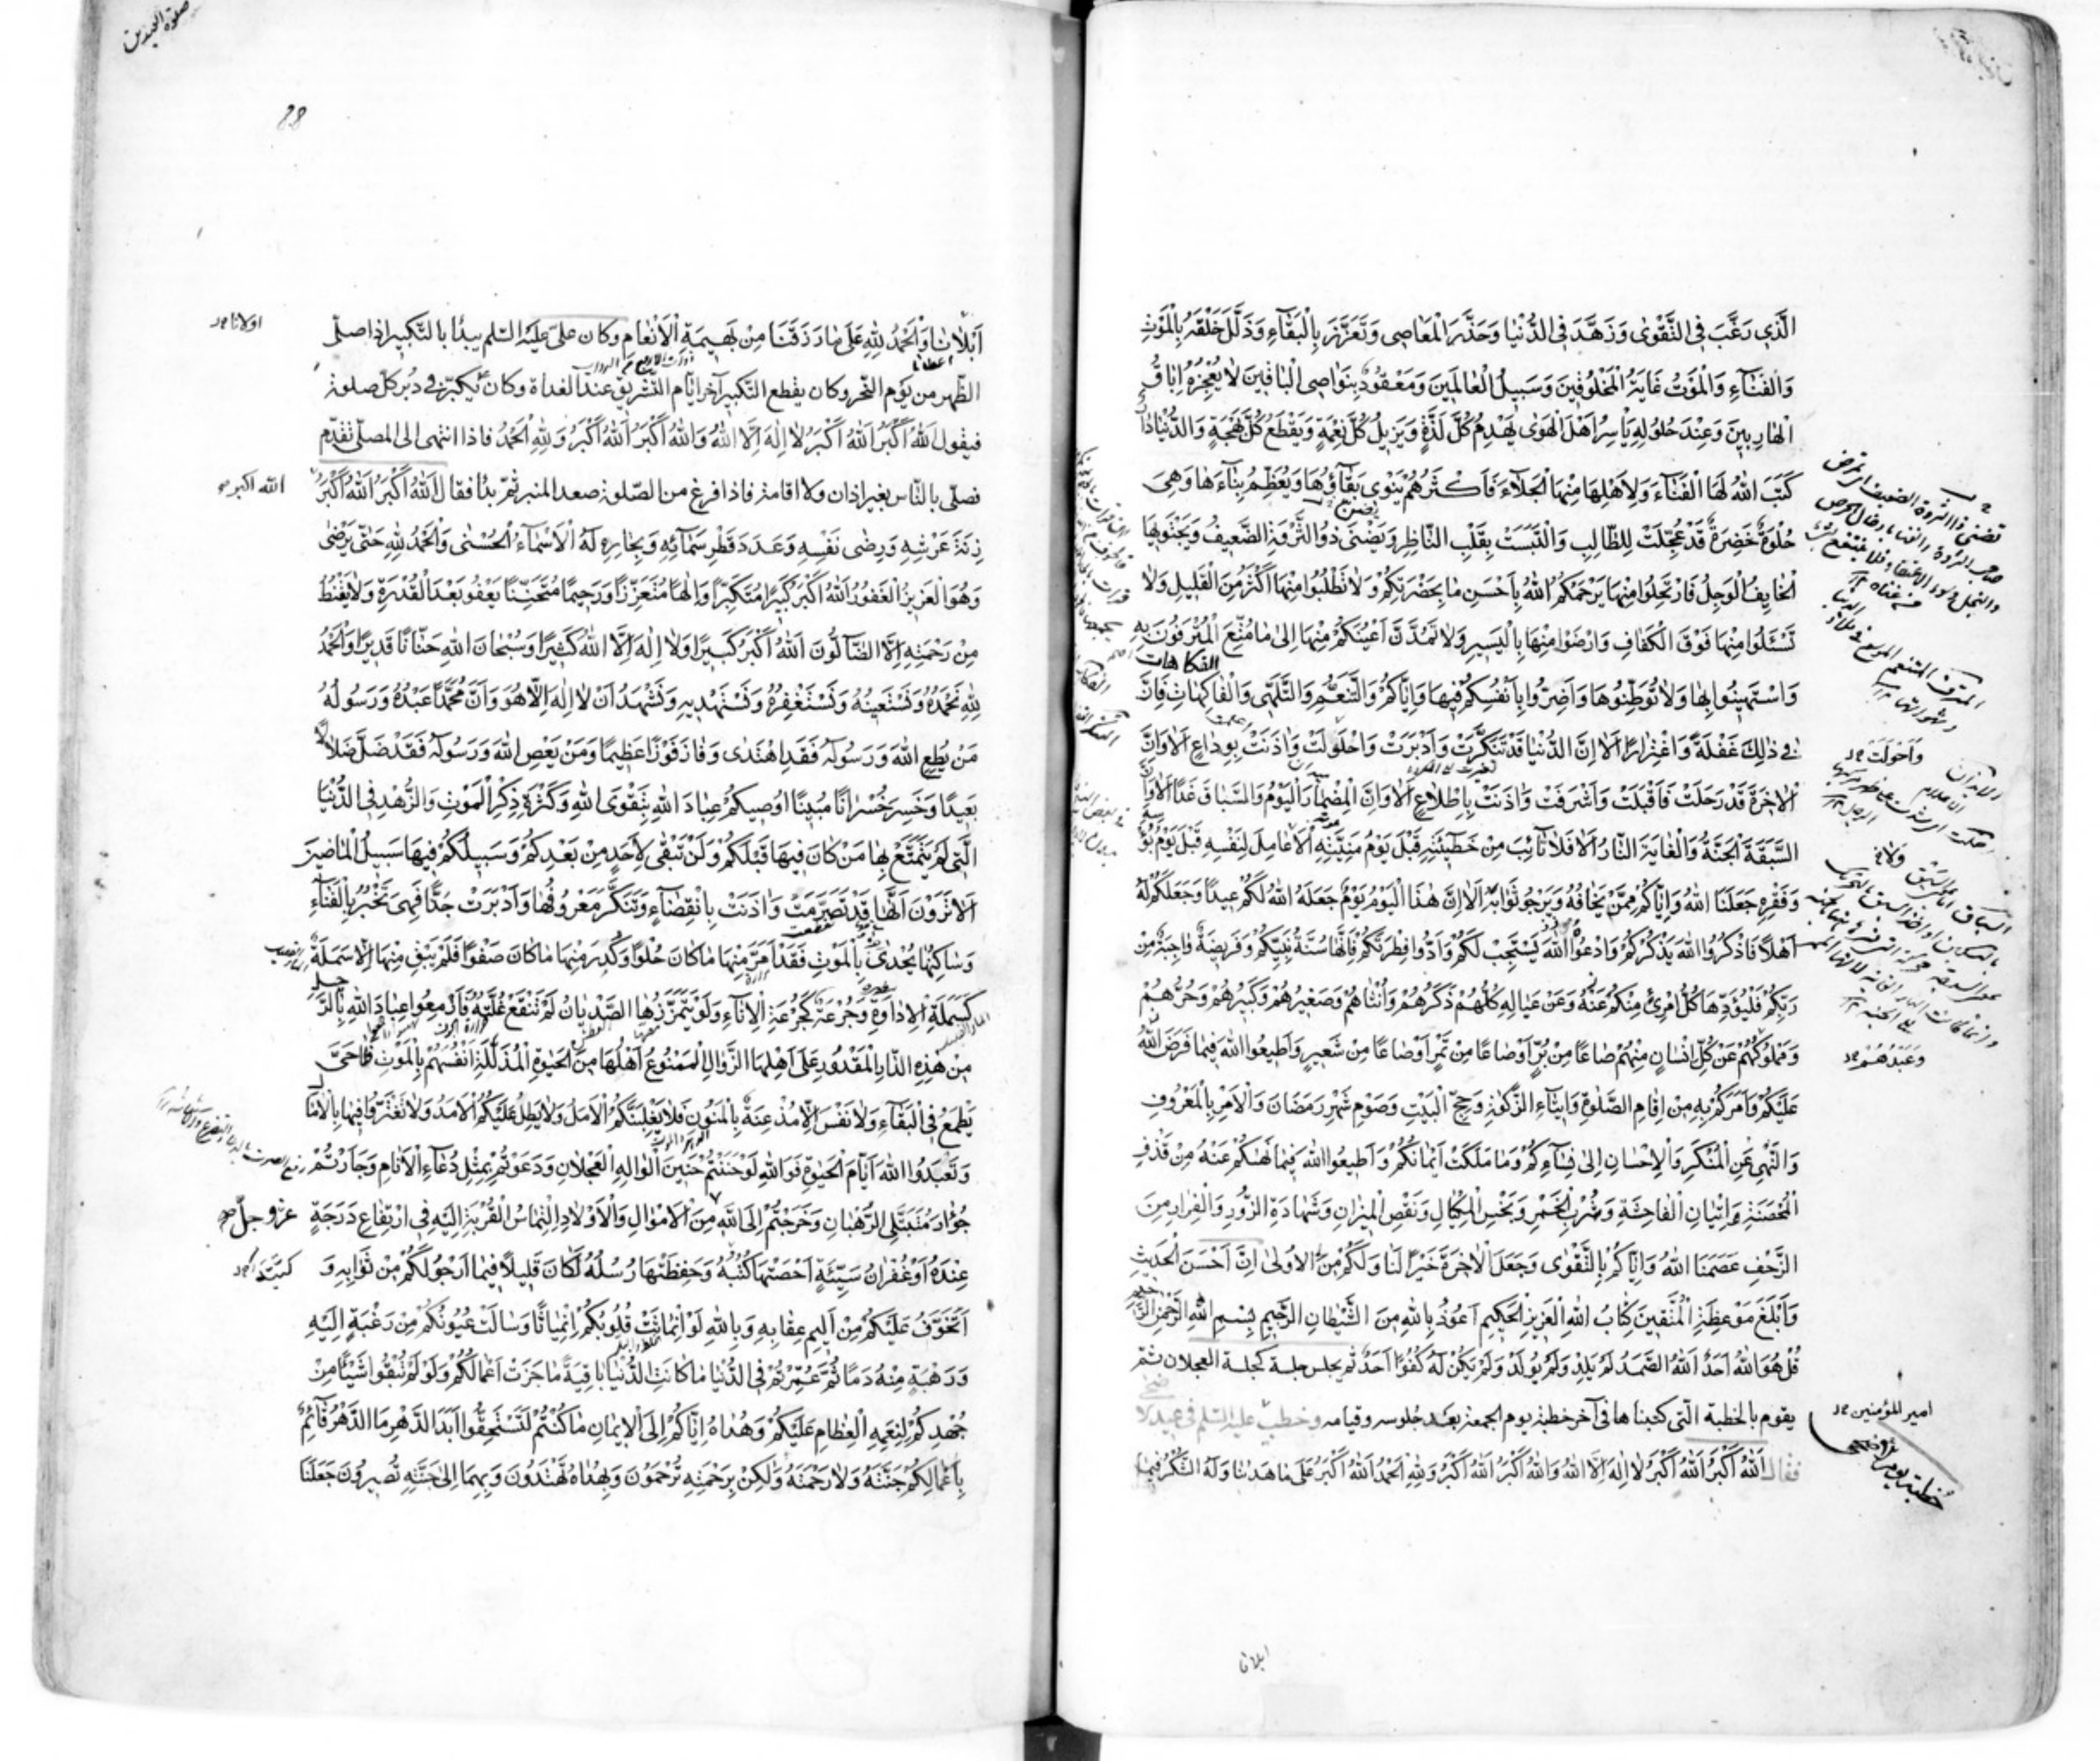 الَّذِي رَغَّبَ فِي التَّقْوٰى وَزَهَّدَ فِي الدُّنْيَا وَحَذَّرَ الْمَعَاصِي وَتَعَزَّزَ بِالْبَقَاءِ وَذَلَّلَ خَلْقَهُ بِالْمَوْتِ
وَالْفَنَاءِ وَالْمَوْتُ غَايَةُ الْمَخْلُوقِينَ وَسَبِيلُ الْعَالَمِينَ وَمَعْقُودٌ بِنَوَاصِي الْبَاقِينَ لَا يُعْجِزُهُ اِبَاقُ
الْهَارِبِينَ وَعِنْدَ حُلُولِهِ يَأْسِرُ اَهْلَ الْهَوٰى يَهْدِمُ كُلَّ لَذَّةٍ وَيُزِيلُ كُلَّ نِعْمَةٍ وَيَقْطَعُ كُلَّ بَهْجَةٍ وَالدُّنْيَا دَارٌ
كَتَبَ اللهُ لَهَا الْفَنَاءَ وَلِاَهْلِهَا مِنْهَا الْجَلَاءَ فَاَكْثَرُهُمْ يَنْوِي بَقَاؤُهَا وَيُعَظِّمُ بِنَاءَهَا وَهِيَ
حُلْوَةٌ خَضِرَةٌ قَدْ عُجِّلَتْ لِلطَّالِبِ وَالْتَبَسَتْ بِقَلْبِ النَّاظِرِ وَيُضْنِي ذُو الثَّرْوَةِ الضَّعِيفُ وَيَجْتَوِيهَا
الْخَايِفُ الْوَجِلُ فَارْتَحِلُوا مِنْهَا يَرْحَمُكُمُ اللهُ بِاَحْسَنِ مَا بِحَضْرَتِكُمْ وَلَا تَطْلُبُوا مِنْهَا اَكْثَرَ مِنَ الْقَلِيلِ وَلَا
تَسْئَلُوا مِنْهَا فَوْقَ الْكَفَافِ وَارْضَوْا مِنْهَا بِالْيَسِيرِ وَلَا تَمُدَّنَّ اَعْيُنَكُمْ مِنْهَا اِلٰى مَا مُتِّعَ الْمُتْرَفُونَ بِهِ
وَاسْتَهِينُوا بِهَا وَلَا تُوَطِّنُوهَا وَاَضِرُّوا بِاَنْفُسِكُمْ فِيهَا وَاِيَّاكُمْ وَالتَّنَعُّمَ وَالتَّلَهِّي وَالْفَاكِهَاتِ فَاِنَّ
فِي ذٰلِكَ غَفْلَةً وَاغْتِرَارًا اَلَا اِنَّ الدُّنْيَا قَدْ تَنَكَّرَتْ وَاَدْبَرَتْ وَاحْلَوْلَتْ وَاٰذَنَتْ بِوِدَاعٍ اَلَا وَاِنَّ
الْاٰخِرَةَ قَدْ رَحَلَتْ فَاَقْبَلَتْ وَاَشْرَفَتْ وَاٰذَنَتْ بِاِطْلَاعٍ اَلَا وَاِنَّ الْمِضْمَارَ الْيَوْمَ وَالسِّبَاقَ غَدًا اَلَا وَاِنَّ
السَّبَقَةَ الْجَنَّةُ وَالْغَايَةَ النَّارُ اَلَا فَلَا تَائِبَ مِنْ خَطِيئَتِهِ قَبْلَ يَوْمِ مَنِيَّتِهِ اَلَا عَامِلَ لِنَفْسِهِ قَبْلَ يَوْمِ بُؤْسِهِ
وَفَقْرِهِ جَعَلَنَا اللهُ وَاِيَّاكُمْ مِمَّنْ يَخَافُهُ وَيَرْجُو ثَوَابَهُ اَلَا اِنَّ هٰذَا الْيَوْمَ يَوْمٌ جَعَلَهُ اللهُ لَكُمْ عِيدًا وَجَعَلَكُمْ لَهُ
اَهْلًا فَاذْكُرُوا اللهَ يَذْكُرْكُمْ وَادْعُوا اللهَ يَسْتَجِبْ لَكُمْ وَاَدُّوا فِطْرَتَكُمْ فَاِنَّهَا سُنَّةُ نَبِيِّكُمْ وَفَرِيضَةٌ وَاجِبَةٌ مِنْ
رَبِّكُمْ فَلْيُؤَدِّهَا كُلُّ امْرِئٍ مِنْكُمْ عَنْهُ وَعَنْ عِيَالِهِ كُلِّهِمْ ذَكَرِهِمْ وَاُنْثَاهُمْ وَصَغِيرِهِمْ وَكَبِيرِهِمْ وَحُرِّهِمْ
وَمَمْلُوكِهِمْ عَنْ كُلِّ اِنْسَانٍ مِنْهُمْ صَاعًا مِنْ بُرٍّ اَوْ صَاعًا مِنْ تَمْرٍ اَوْ صَاعًا مِنْ شَعِيرٍ وَاَطِيعُوا اللهَ فِيمَا فَرَضَ اللهُ
عَلَيْكُمْ وَاَمَرَكُمْ بِهِ مِنْ اِقَامِ الصَّلٰوةِ وَاِيتَاءِ الزَّكٰوةِ وَحِجِّ الْبَيْتِ وَصَوْمِ شَهْرِ رَمَضَانَ وَالْاَمْرِ بِالْمَعْرُوفِ
وَالنَّهْيِ عَنِ الْمُنْكَرِ وَالْاِحْسَانِ اِلٰى نِسَاءِكُمْ وَمَا مَلَكَتْ اَيْمَانُكُمْ وَاَطِيعُوا اللهَ فِيمَا نَهٰكُمْ عَنْهُ مِنْ قَذْفِ
الْمُحْصَنَةِ وَاِتْيَانِ الْفَاحِشَةِ وَشُرْبِ الْخَمْرِ وَبَخْسِ الْمِكْيَالِ وَنَقْصِ الْمِيزَانِ وَشَهَادَةِ الزُّورِ وَالْفِرَارِ مِنَ
الزَّحْفِ عَصَمَنَا اللهُ وَاِيَّاكُمْ بِالتَّقْوٰى وَجَعَلَ الْاٰخِرَةَ خَيْرًا لَنَا وَلَكُمْ مِنَ الْاُولٰى اِنَّ اَحْسَنَ الْحَدِيثِ
وَاَبْلَغَ مَوْعِظَةِ الْمُتَّقِينَ كِتَابُ اللهِ الْعَزِيزِ الْحَكِيمِ اَعُوذُ بِاللهِ مِنَ الشَّيْطَانِ الرَّجِيمِ بِسْمِ اللهِ الرَّحْمٰنِ الرَّحِيمِ
قُلْ هُوَ اللهُ اَحَدٌ اَللهُ الصَّمَدُ لَمْ يَلِدْ وَلَمْ يُولَدْ وَلَمْ يَكُنْ لَهُ كُفُوًا اَحَدٌ ثم يجلس جلسة كجلسة العجلان ثم
يقوم بالخطبة الّتى كتبناها فى آخر خطبة يوم الجمعة بعد جلوسه وقيامه وخطب عليه السّلم فى عيد الا
فقال اَللهُ اَكْبَرُ اَللهُ اَكْبَرُ لَا اِلٰهَ اِلَّا اللهُ وَاللهُ اَكْبَرُ اَللهُ اَكْبَرُ وَلِلّٰهِ الْحَمْدُ اَللهُ اَكْبَرُ عَلٰى مَا هَدٰىنَا وَلَهُ الشُّكْرُ فِيمَا
وَاحْوَلَّتْ
وَعَبْدِهُمْ
امير المؤمنين
ابلانا
صلوة العيدين
اَبْلَانَا وَالْحَمْدُ لِلّٰهِ عَلٰى مَا رَزَقَنَا مِنْ بَهِيمَةِ الْاَنْعَامِ وكان علىّ عليه السّلم يبدأ بالتّكبير اذا صلّى
الظّهر من يوم النّحر وكان يقطع التّكبير آخر ايّام التّشريق عند الغداة وكان يكبّر فى دبر كلّ صلوة
فيقول اَللهُ اَكْبَرُ اَللهُ اَكْبَرُ لَا اِلٰهَ اِلَّا اللهُ وَاللهُ اَكْبَرُ اَللهُ اَكْبَرُ وَلِلّٰهِ الْحَمْدُ فاذا انتهى الى المصلّى تقدّم
فصلّى بالنّاس بغير اذان ولا اقامة فاذا فرغ من الصّلوة صعد المنبر ثمّ بدأ فقال اَللهُ اَكْبَرُ اَللهُ اَكْبَرُ
زِنَةَ عَرْشِهِ وَرِضٰى نَفْسِهِ وَعَدَدَ قَطْرِ سَمَآئِهِ وَبِحَارِهِ لَهُ الْاَسْمَاءُ الْحُسْنٰى وَالْحَمْدُ لِلّٰهِ حَتّٰى يَرْضٰى
وَهُوَ الْعَزِيزُ الْغَفُورُ اَللهُ اَكْبَرُ كَبِيرًا مُتَكَبِّرًا وَاِلٰهًا مُتَعَزِّزًا وَرَحِيمًا مُتَحَنِّنًا يَعْفُو بَعْدَ الْقُدْرَةِ وَلَا يَقْنَطُ
مِنْ رَحْمَتِهِ اِلَّا الضَّالُّونَ اَللهُ اَكْبَرُ كَبِيرًا وَلَا اِلٰهَ اِلَّا اللهُ كَثِيرًا وَسُبْحَانَ اللهِ حَنَّانًا قَدِيرًا وَالْحَمْدُ
لِلّٰهِ نَحْمَدُهُ وَنَسْتَعِينُهُ وَنَسْتَغْفِرُهُ وَنَسْتَهْدِيهِ وَنَشْهَدُ اَنْ لَا اِلٰهَ اِلَّا هُوَ وَاَنَّ مُحَمَّدًا عَبْدُهُ وَرَسُولُهُ
مَنْ يُطِعِ اللهَ وَرَسُولَهُ فَقَدِ اهْتَدٰى وَفَازَ فَوْزًا عَظِيمًا وَمَنْ يَعْصِ اللهَ وَرَسُولَهُ فَقَدْ ضَلَّ ضَلَالًا
بَعِيدًا وَخَسِرَ خُسْرَانًا مُبِينًا اُوصِيكُمْ عِبَادَ اللهِ بِتَقْوَى اللهِ وَكَثْرَةِ ذِكْرِ الْمَوْتِ وَالزُّهْدِ فِي الدُّنْيَا
الَّتِي لَمْ يَتَمَتَّعْ بِهَا مَنْ كَانَ فِيهَا قَبْلَكُمْ وَلَنْ تَبْقٰى لِاَحَدٍ مِنْ بَعْدِكُمْ وَسَبِيلُكُمْ فِيهَا سَبِيلُ الْمَاضِينَ
اَلَا تَرَوْنَ اَنَّهَا قَدْ تَصَرَّمَتْ وَاٰذَنَتْ بِانْقِضَاءٍ وَتَنَكَّرَ مَعْرُوفُهَا وَاَدْبَرَتْ جَذَّاءَ فَهِيَ تُخْبِرُ بِالْفَنَاءِ
وَسَاكِنُهَا يُحْدٰى بِالْمَوْتِ فَقَدْ اَمَرَّ مِنْهَا مَا كَانَ حُلْوًا وَكَدِرَ مِنْهَا مَا كَانَ صَفْوًا فَلَمْ يَبْقَ مِنْهَا اِلَّا سَمَلَةٌ
كَسَمَلَةِ الْاِدَاوَةِ وَجُرْعَةٌ كَجُرْعَةِ الْاِنَاءِ وَلَوْ يَتَمَزَّزُهَا الصَّدْيَانُ لَمْ تَنْقَعْ غُلَّتَهُ فَاَزْمِعُوا عِبَادَ اللهِ بِالرَّحِيلِ
مِنْ هٰذِهِ الدَّارِ الْمَقْدُورِ عَلٰى اَهْلِهَا الزَّوَالُ الْمَمْنُوعِ اَهْلُهَا مِنَ الْحَيٰوةِ الْمُذَلَّلَةِ اَنْفُسُهُمْ بِالْمَوْتِ فَمَا حَيٌّ
يَطْمَعُ فِي الْبَقَاءِ وَلَا نَفْسٌ اِلَّا مُذْعِنَةٌ بِالْمَنُونِ فَلَا يَغْلِبَنَّكُمُ الْاَمَلُ وَلَا يَطُلْ عَلَيْكُمُ الْاَمَدُ وَلَا تَغْتَرُّوا فِيهَا بِالْاٰمَالِ
وَتَعَبَّدُوا لِلّٰهِ اَيَّامَ الْحَيٰوةِ فَوَاللهِ لَوْ حَنَنْتُمْ حَنِينَ الْوَالِهِ الْعَجْلَانِ وَدَعَوْتُمْ بِمِثْلِ دُعَاءِ الْاَنَامِ وَجَأَرْتُمْ
جُؤَارَ مُتَبَتِّلِي الرُّهْبَانِ وَخَرَجْتُمْ اِلَى اللهِ مِنَ الْاَمْوَالِ وَالْاَوْلَادِ اِلْتِمَاسَ الْقُرْبَةِ اِلَيْهِ فِي ارْتِفَاعِ دَرَجَةٍ
عِنْدَهُ اَوْ غُفْرَانِ سَيِّئَةٍ اَحْصَتْهَا كَتَبَتُهُ وَحَفِظَتْهَا رُسُلُهُ لَكَانَ قَلِيلًا فِيمَا اَرْجُو لَكُمْ مِنْ ثَوَابِهِ وَ
اَتَخَوَّفُ عَلَيْكُمْ مِنْ اَلِيمِ عِقَابِهِ وَبِاللهِ لَوِ انْمَاثَتْ قُلُوبُكُمُ انْمِيَاثًا وَسَالَتْ عُيُونُكُمْ مِنْ رَغْبَةٍ اِلَيْهِ
وَرَهْبَةٍ مِنْهُ دَمًا ثُمَّ عُمِّرْتُمْ فِي الدُّنْيَا مَا كَانَتِ الدُّنْيَا بَاقِيَةً مَا جَزَتْ اَعْمَالُكُمْ وَلَوْ لَمْ تُبْقُوا شَيْئًا مِنْ
جُهْدِكُمْ لِنِعَمِهِ الْعِظَامِ عَلَيْكُمْ وَهُدَاهُ اِيَّاكُمْ اِلَى الْاِيمَانِ مَا كُنْتُمْ لِتَسْتَحِقُّوا اَبَدَ الدَّهْرِ مَا الدَّهْرُ قَائِمٌ
بِاَعْمَالِكُمْ جَنَّتَهُ وَلَا رَحْمَتَهُ وَلٰكِنْ بِرَحْمَتِهِ تُرْحَمُونَ وَبِهُدَاهُ تَهْتَدُونَ وَبِهِمَا اِلٰى جَنَّتِهِ تَصِيرُونَ جَعَلَنَا
اولانا
الله اكبر
عزّ وجلّ